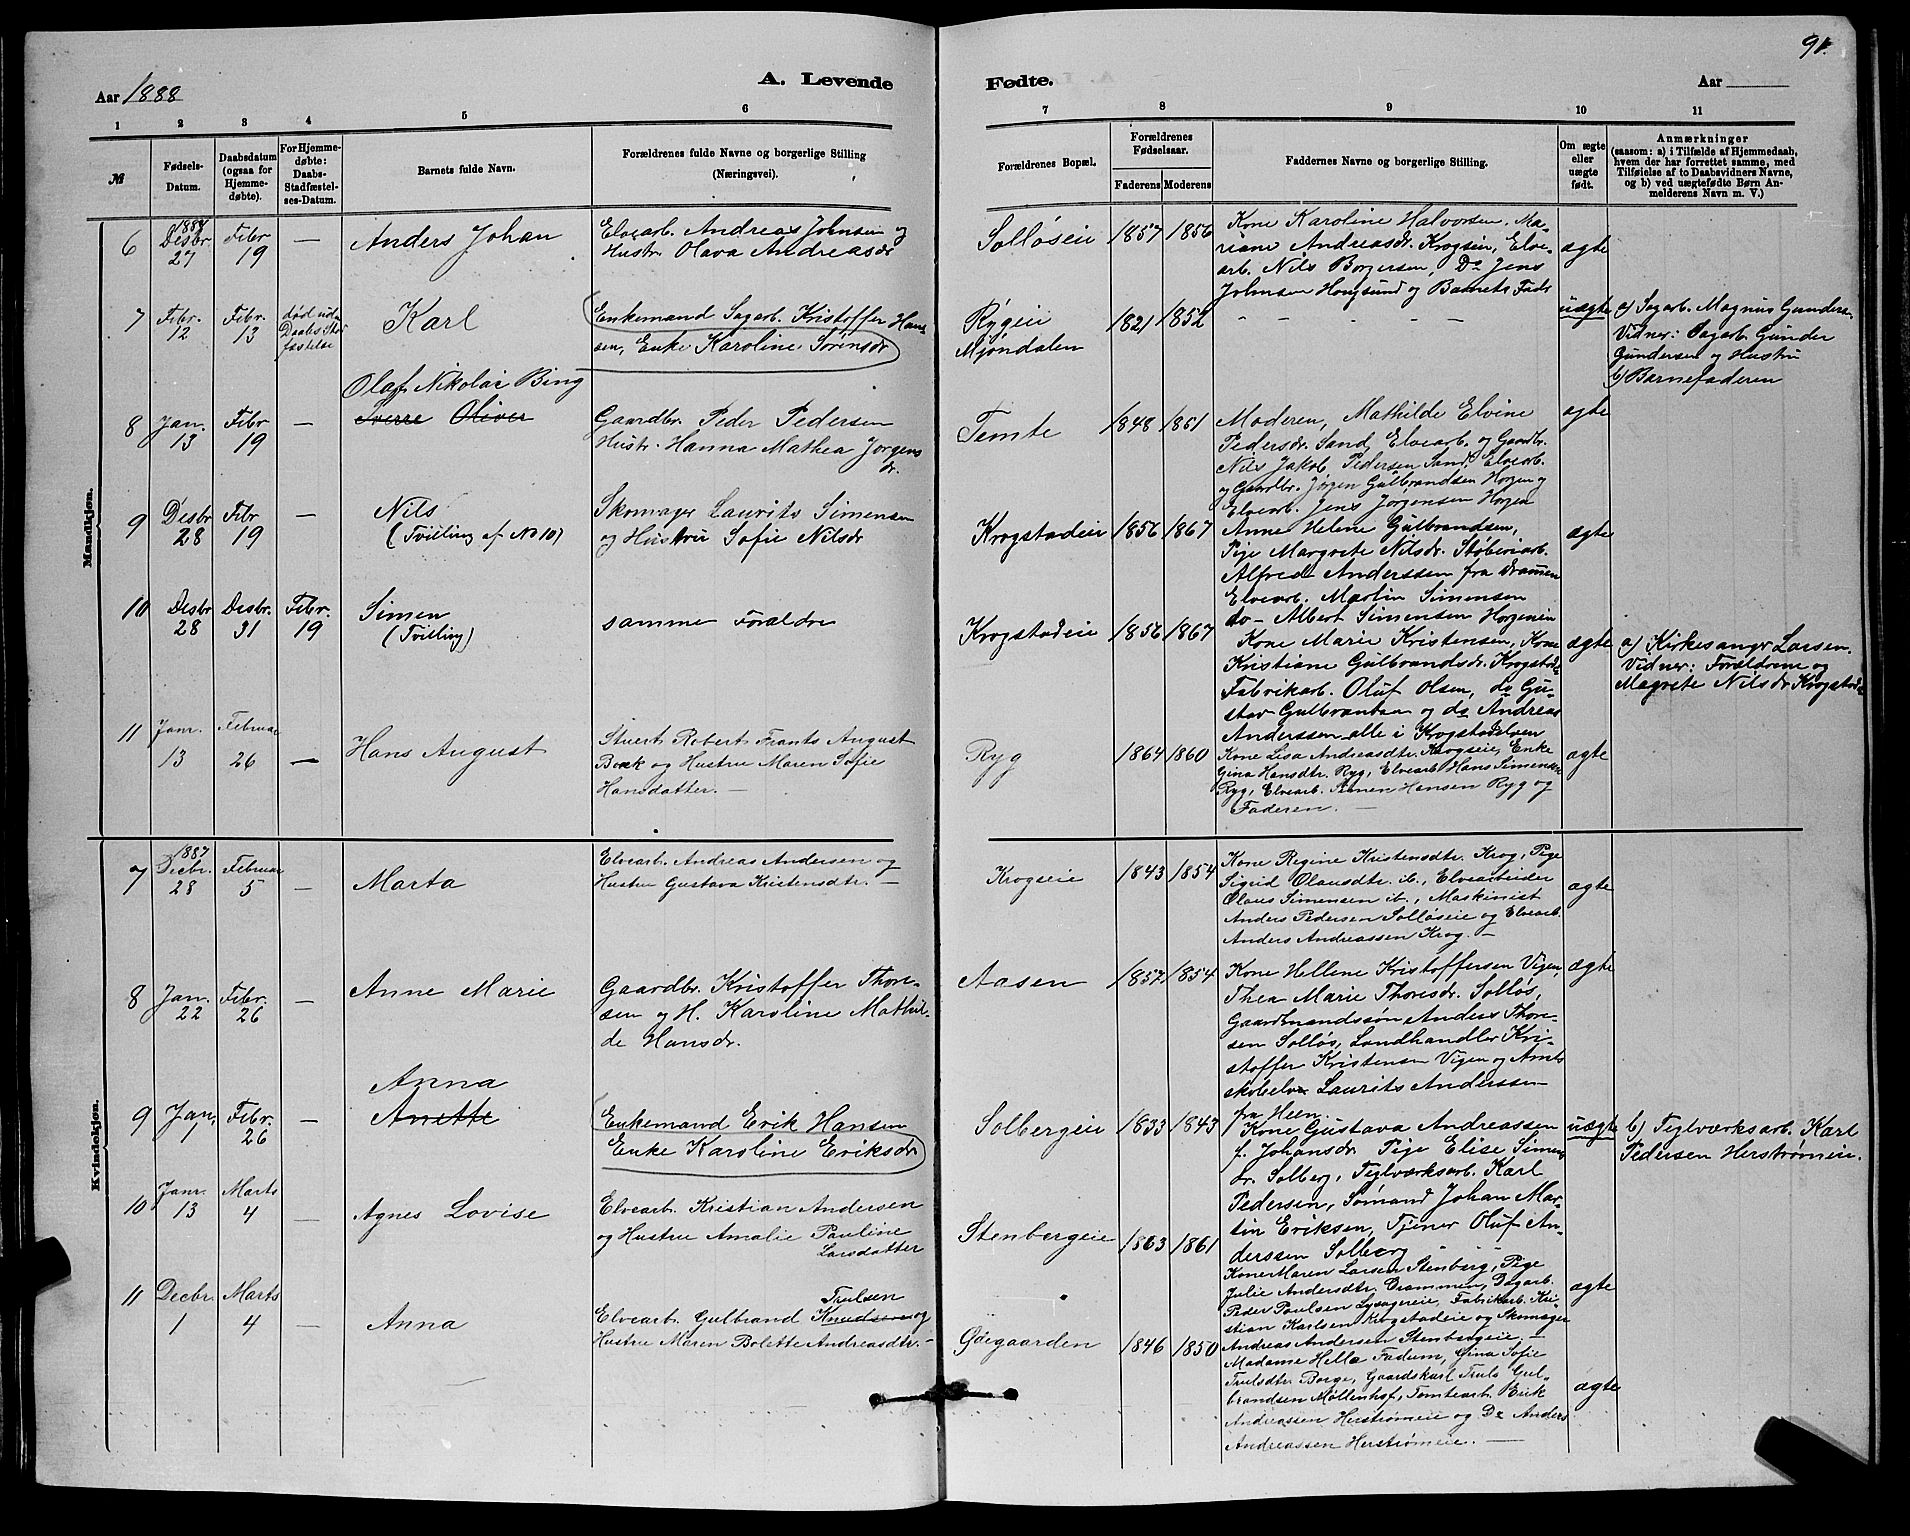 91.
Aar 1888
A. Levende
Fødte.
Aar
1 2 3 4 5 6 7 8 9 10 11
№
Fødsels-Datum.
Daabsdatum (ogsaa for Hjemmedøbte).
For Hjemmedøbte: Daabs-Stadfæstelses-Datum.
Barnets fulde Navn.
Forældrenes fulde Navne og borgerlige Stilling (Næringsvei).
Forældrenes Bopæl.
Forældrenes Fødselsaar.
Faderens Moderens
Faddernes Navne og borgerlige Stilling.
Om ægte eller uægte født.
Anmærkninger
(saasom: a) i Tilfælde af Hjemmedaab, hvem der har forrettet samme, med Tilføielse af to Daabsvidners Navne, og b) ved uægtefødte Børn Anmelderens Navn m. V.)
Mandkjøn.
6
1887
Desbr. 27
Febr 19
—
Anders Johan
Elvearb. Andreas Johnsen og
Hustr Olava Andreasdr
Solløseie
1857 1856
Kone Karoline Halvorsen, Ma-
riane Andreasdr. Krogsein, Elve-
arb. Nils Borgersen, Do Jens
Johnsen Hougsund og Barnets Fadr
ægte
7
Febr. 12
Febr. 13
død uden
Daabs Stad
fæstelse
Karl
Enkemand Sagarb. Kristoffer Han
sen, Enke Karoline Sørensdr
Rygeie
Mjøndalen
1821 1852
— — — — —
uægte
a) Sagarb. Magnus Gundersen
Vidner: Sagarb. Gunder
Gundersen og Hustru
b) Barnefaderen
8
Jan. 13
Febr 19
—
Olaf Nikolai Bing
Sverre Oliver
Gaardbr. Peder Pedersen
Hustr. Hanna Mathea Jørgens
dr.
Temte
1848 1861
Moderen, Mathilde Elvine
Pedersdr. Sand, Elvearb. og Gaardbr.
Nils Jakob Pedersen Sand, Elvearb.
og Gaardbr. Jørgen Gulbrandsen Horgen og
Elvearb. Jens Jørgensen Horgen
ægte
9
Desbr 28
Febr 19
—
Nils
(Tvilling af No 10)
Skomager Laurits Simensen
og Hustru Sofie Nilsdr
Krogstadeie
1856 1867
Anne Helene Gulbrandsen,
Pige Margrete Nilsdr. Støberiarb.
Alfred Anderssen fra Drammen
Elvearb. Martin Simensen
do Albert Simensen Horgenein
ægte
10
Desbr 28
Desbr. 31
Febr. 19
Simen
(Tvilling)
samme Forældre
Krogstadeie
1856 1867
Kone Marie Kristensen, Kone
Kristiane Gulbrandsdr. Krogstade
Fabrikarb. Oluf Olsen, do Gu-
stav Gulbrantsen og do Andreas
Anderssen alle i Krogstadelven
ægte
a) Kirkesangr Larsen.
Vidner: Forældrene og
Magrete Nilsdr Krogstade
11
Janr. 13
Februar 26
—
Hans August
Stuert Robert Frants August
Bock og Hustru Maren Sofie
Hansdatter. —
Ryg
1864 1860
Kone Lisa Andreasdtr. Krogseie, Enke
Gina Hansdtr. Ryg, Elvearb. Hans Simensen
Ryg, Elvearb. Simen Hansen Ryg og
Faderen. —
ægte
Kvindekjøn.
7
1887
Decbr. 28
Februar 5
—
Marta
Elvearb. Andreas Andersen og
Hustru Gustava Kristensdtr. —
Krogseie
1843 1854
Kone Regine Kristensdtr. Krog, Pige
Sigrid Olausdtr. ib., Elvearbeider
Olaus Simensen ib., Maskinist
Anders Pedersen Solløseie og Elvearb.
Anders Andreassen Krog. —
ægte
8
Jan. 22
Febr. 26
—
Anne Marie
Gaardbr. Kristoffer Thore-
sen og H. Karoline Mathil-
de Hansdr.
Aasen
1857 1854
Kone Hellene Kristoffersen Vigen,
Thea Marie Thoresdr. Solløs,
Gaardmandssøn Anders Thore-
sen Solløs, Landhandler Kri-
stoffer Kristensen Vigen og Amts
skolelær Laurits Anderssen
fra Heen.
ægte
9
Jan. 1
Febr. 26
—
Anna
Anette
Enkemand Erik Hansen
Enke Karoline Eriksdr
Solbergeie
1833 1843
Kone Gustava Andreassen
f. Johansdr. Pige Elise Simens
dr. Solberg, Teglværksarb. Karl
Pedersen, Sømand Johan Mar-
tin Eriksen, Tjener Oluf An-
derssen Solberg
uægte
b) Teglværksarb. Karl
Pedersen Herstrømeie.
10
Janr. 13
Marts 4
—
Agnes Lovise
Elvearb. Kristian Andersen
og Hustru Amalie Pauline
Larsdatter
Stenbergeie
1863 1861
Kone Maren Larsen Stenberg, Pige
Julie Andersdtr. Drammen, Dagarb.
Peder Paulsen Lysagereie, Fabrikarb. Kri-
stian Karlsen Krogstadeie og Skomager
Andreas Andersen Stenbergeie. —
ægte
11
Decbr. 1
Marts 4
—
Anna
Trulsen
Elvearb. Gulbrand Knudsen og
Hustru Maren Bolette Andreasdtr. —
Ødegaarden
1846 1850
Madame Helle Fadum, Gina Sofie
Trulsdtr. Borge, Gaardskarl Truls Gul-
brandsen Møllenhof, Tomtearb. Erik
Andreassen Herstrømeie og Do Anders
Andreassen Herstrømeie. —
ægte